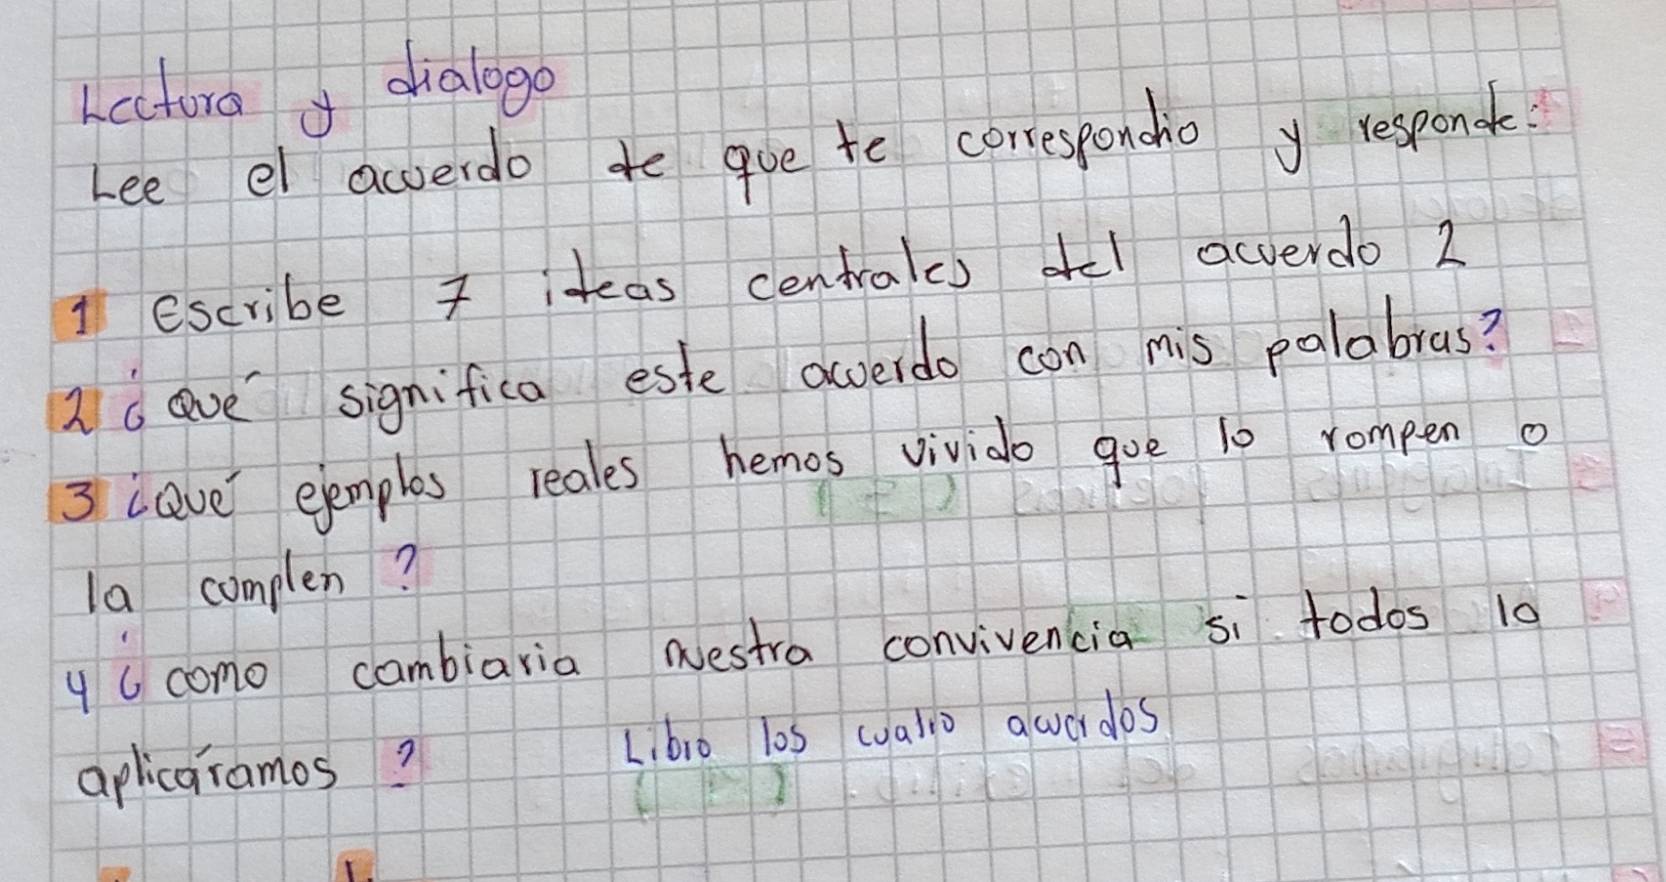 Lectura y dialogo
Lee el acuerdo de que te correspondio y responde:
1 Escribe 7 ideas centrales del acuerdo 2
2 ¿Qué significa este acuerdo con mis palabras?
3 ¿Qué ejemplos reales hemos vivido que lo rompen o
la cumplen ?
4 ¿ como cambiaria nuestra convivencia si todos lo
aplicáramos ?
Libro los cuatro acuerdos